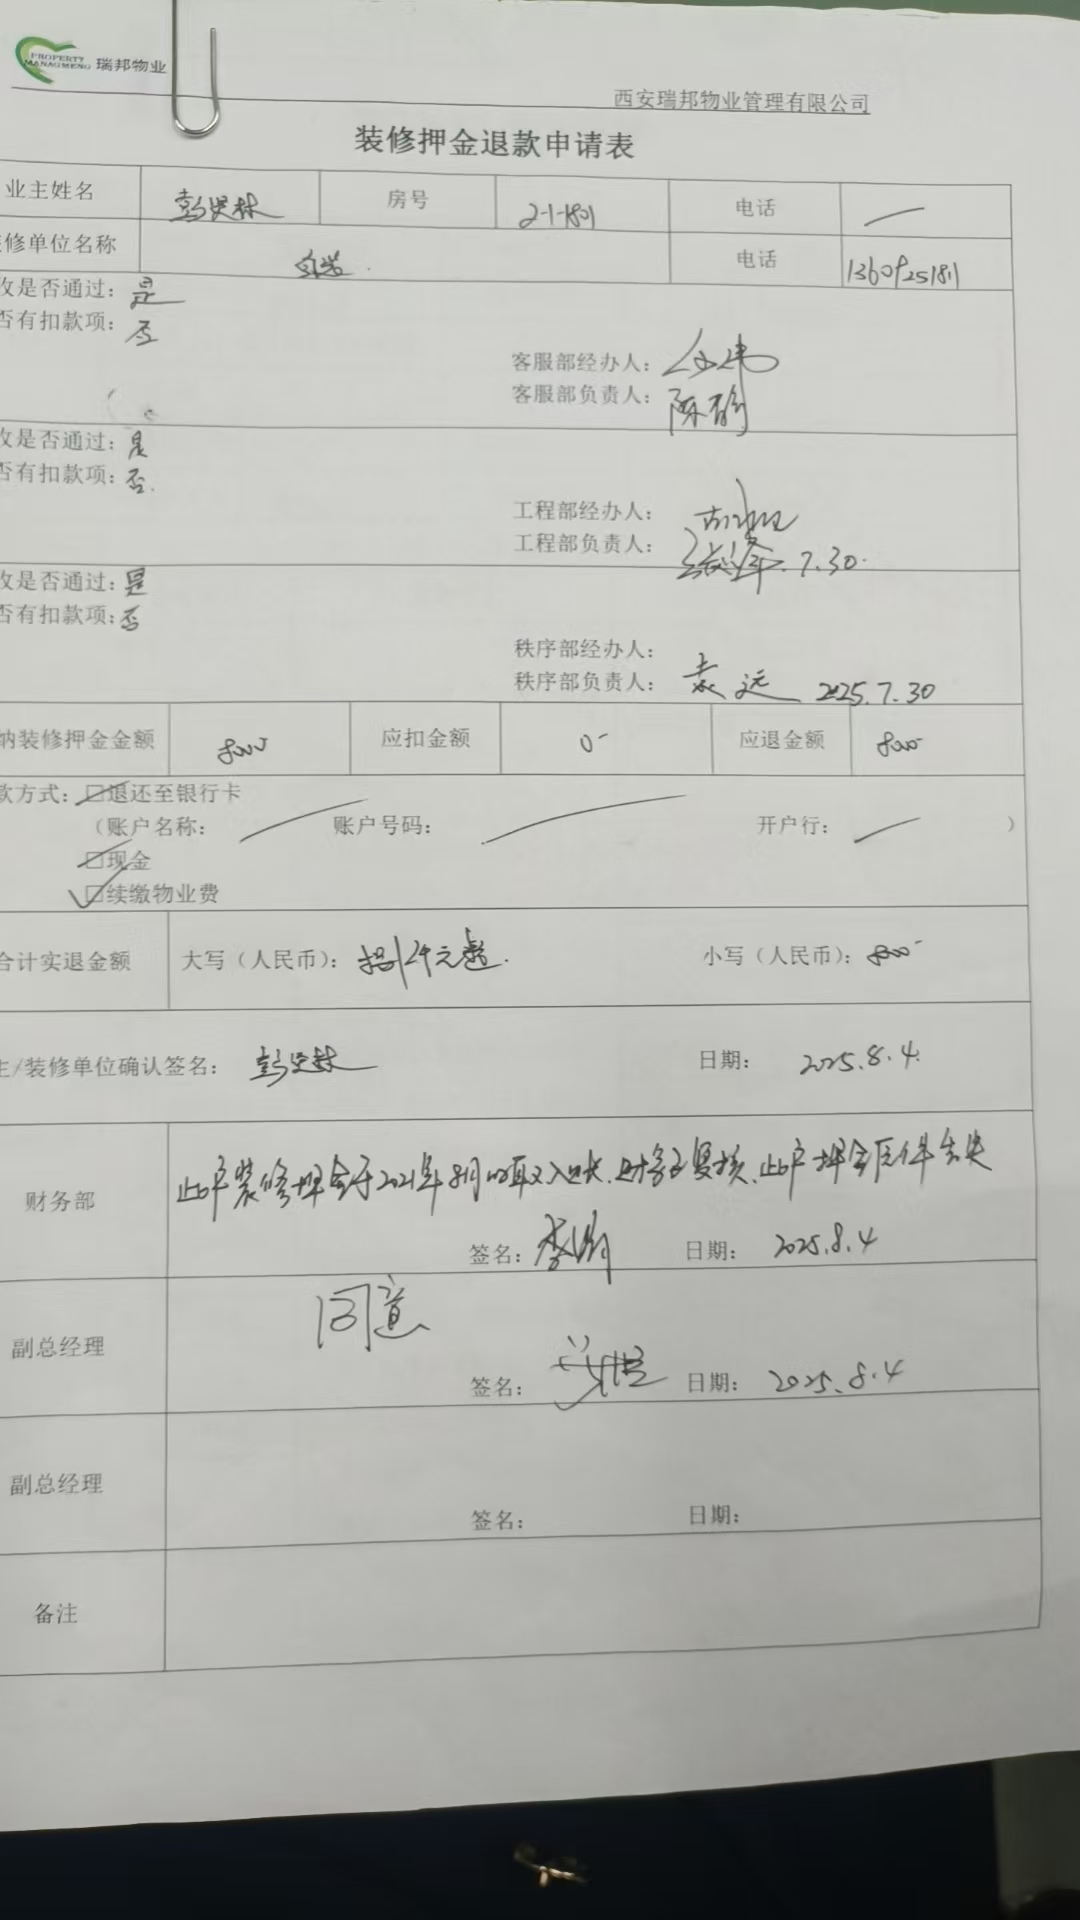 PROPERTY
MANAGMENG 瑞邦物业
西安瑞邦物业管理有限公司
装修押金退款申请表
业主姓名 房号 2-1-1801 电话
修单位名称 电话 13609251811
收是否通过：是
否有扣款项：否
客服部经办人：
客服部负责人：陈静
收是否通过：是
否有扣款项：否
工程部经办人：
工程部负责人： 7.30
收是否通过：是
否有扣款项：否
秩序部经办人：
秩序部负责人：袁远 2025.7.30
纳装修押金金额 应扣金额 0- 应退金额
款方式：□退还至银行卡
（账户名称： 账户号码： 开户行： ）
□现金
□续缴物业费
合计实退金额 大写（人民币）：捌仟元整. 小写（人民币）：
主/装修单位确认签名： 日期： 2025.8.4.
此户装修押金于2021年 收入账.财务已复核.此户押金原件丢失
财务部
签名： 日期： 2025.8.4
同意
副总经理
签名： 日期： 2025.8.4
副总经理
签名： 日期：
备注